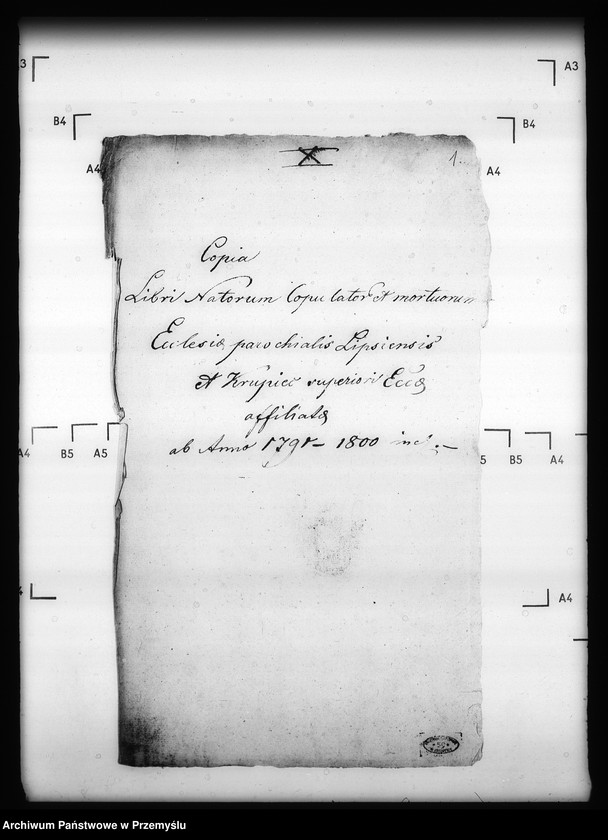 A3
A3
B4
B4
A4
A4
1.
Copia
Libri Natorum Copulator et mortuorum
Ecclesiæ parochialis Lipsiensis
et Krupiec superiori Eccæ
affiliatæ
ab Anno 1791 – 1800 incl. –
A4
B5
A5
5
B5
A4
A4
Archiwum Państwowe w Przemyślu